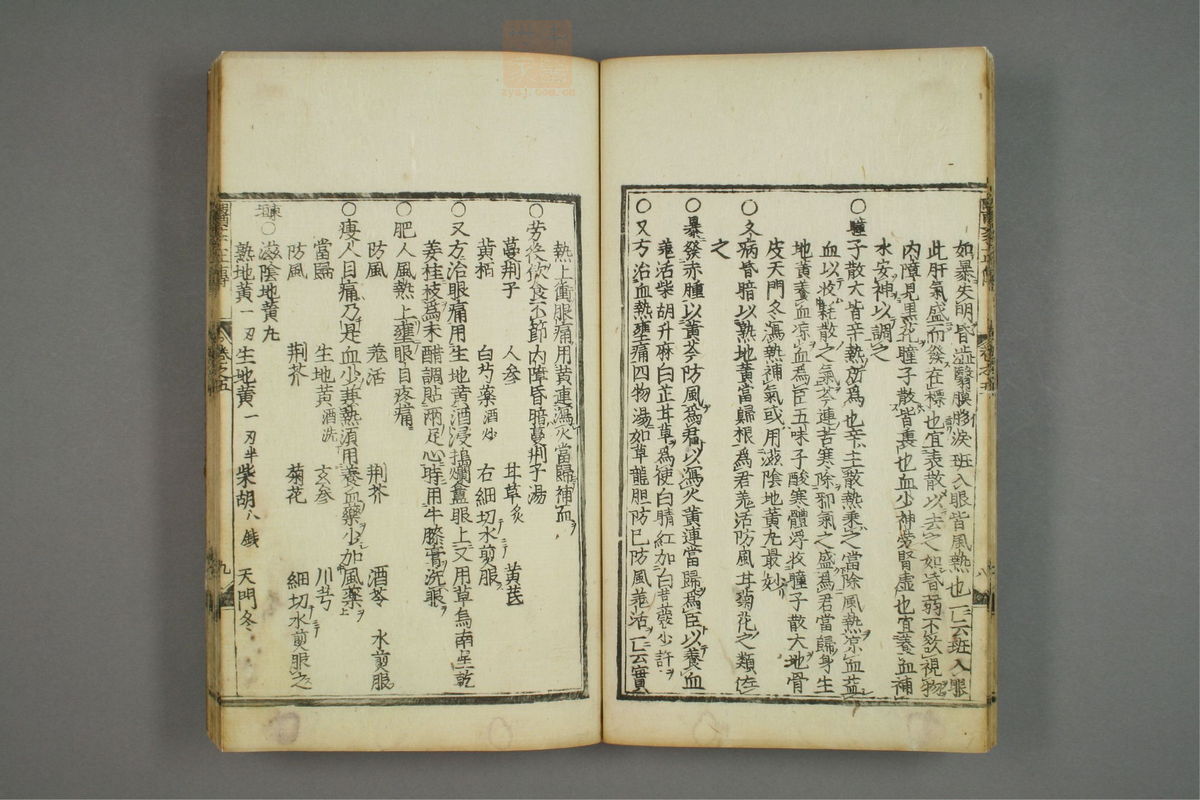 如暴失明昏澁翳膜眵淚班入眼皆風熱也一云班入眼
此肝氣盛而發在標也宜表散以去之如昏弱不欲視物
内障見黒花瞳子散皆裏也血少神勞腎虚也宜養血補
水安神以調之
○瞳子散大皆辛熱所爲也辛主散熱乗之當除風熱凉血益
血以收耗散之氣芩連苦寒除邪氣之盛爲君當歸身生
地黄養血凉血爲臣五味子酸寒體浮收瞳子散大地骨
皮天門冬瀉熱補氣或用滋陰地黄丸最妙
○久病昏暗以熟地黄當歸根爲君羗活防風甘菊花之類佐
之
○暴發赤腫以黄芩防風爲君以瀉火黄連當歸爲臣以養血
羗活柴胡升麻白芷甘草爲使白睛紅加白荳蔲少許
○又方治血熱壅痛四物湯如草龍胆防已防風羗活一云實
熱上衝眼痛用黄連瀉火當歸補血
○労後飲食不節内障昏暗蔓荆子湯
蔓荆子 人参 甘草炙 黄芪
黄栢 白芍薬酒炒 右細切水煎服
○又方治眼痛用生地黄酒浸搗爛盦眼上又用草烏南星乾
姜桂枝爲末醋調貼兩足心時用牛膝膏洗眼
○肥人風熱上壅眼目疼痛
防風 羗活 荆芥 酒芩 水煎服
○痩人目痛乃是血少兼熱須用養血藥少加風藥
當歸 生地黄酒洗 玄参 川芎
防風 荆芥 菊花 細切水煎服之
東垣○滋陰地黄丸
熟地黄一刄 生地黄一刄半 柴胡八銭 天門冬